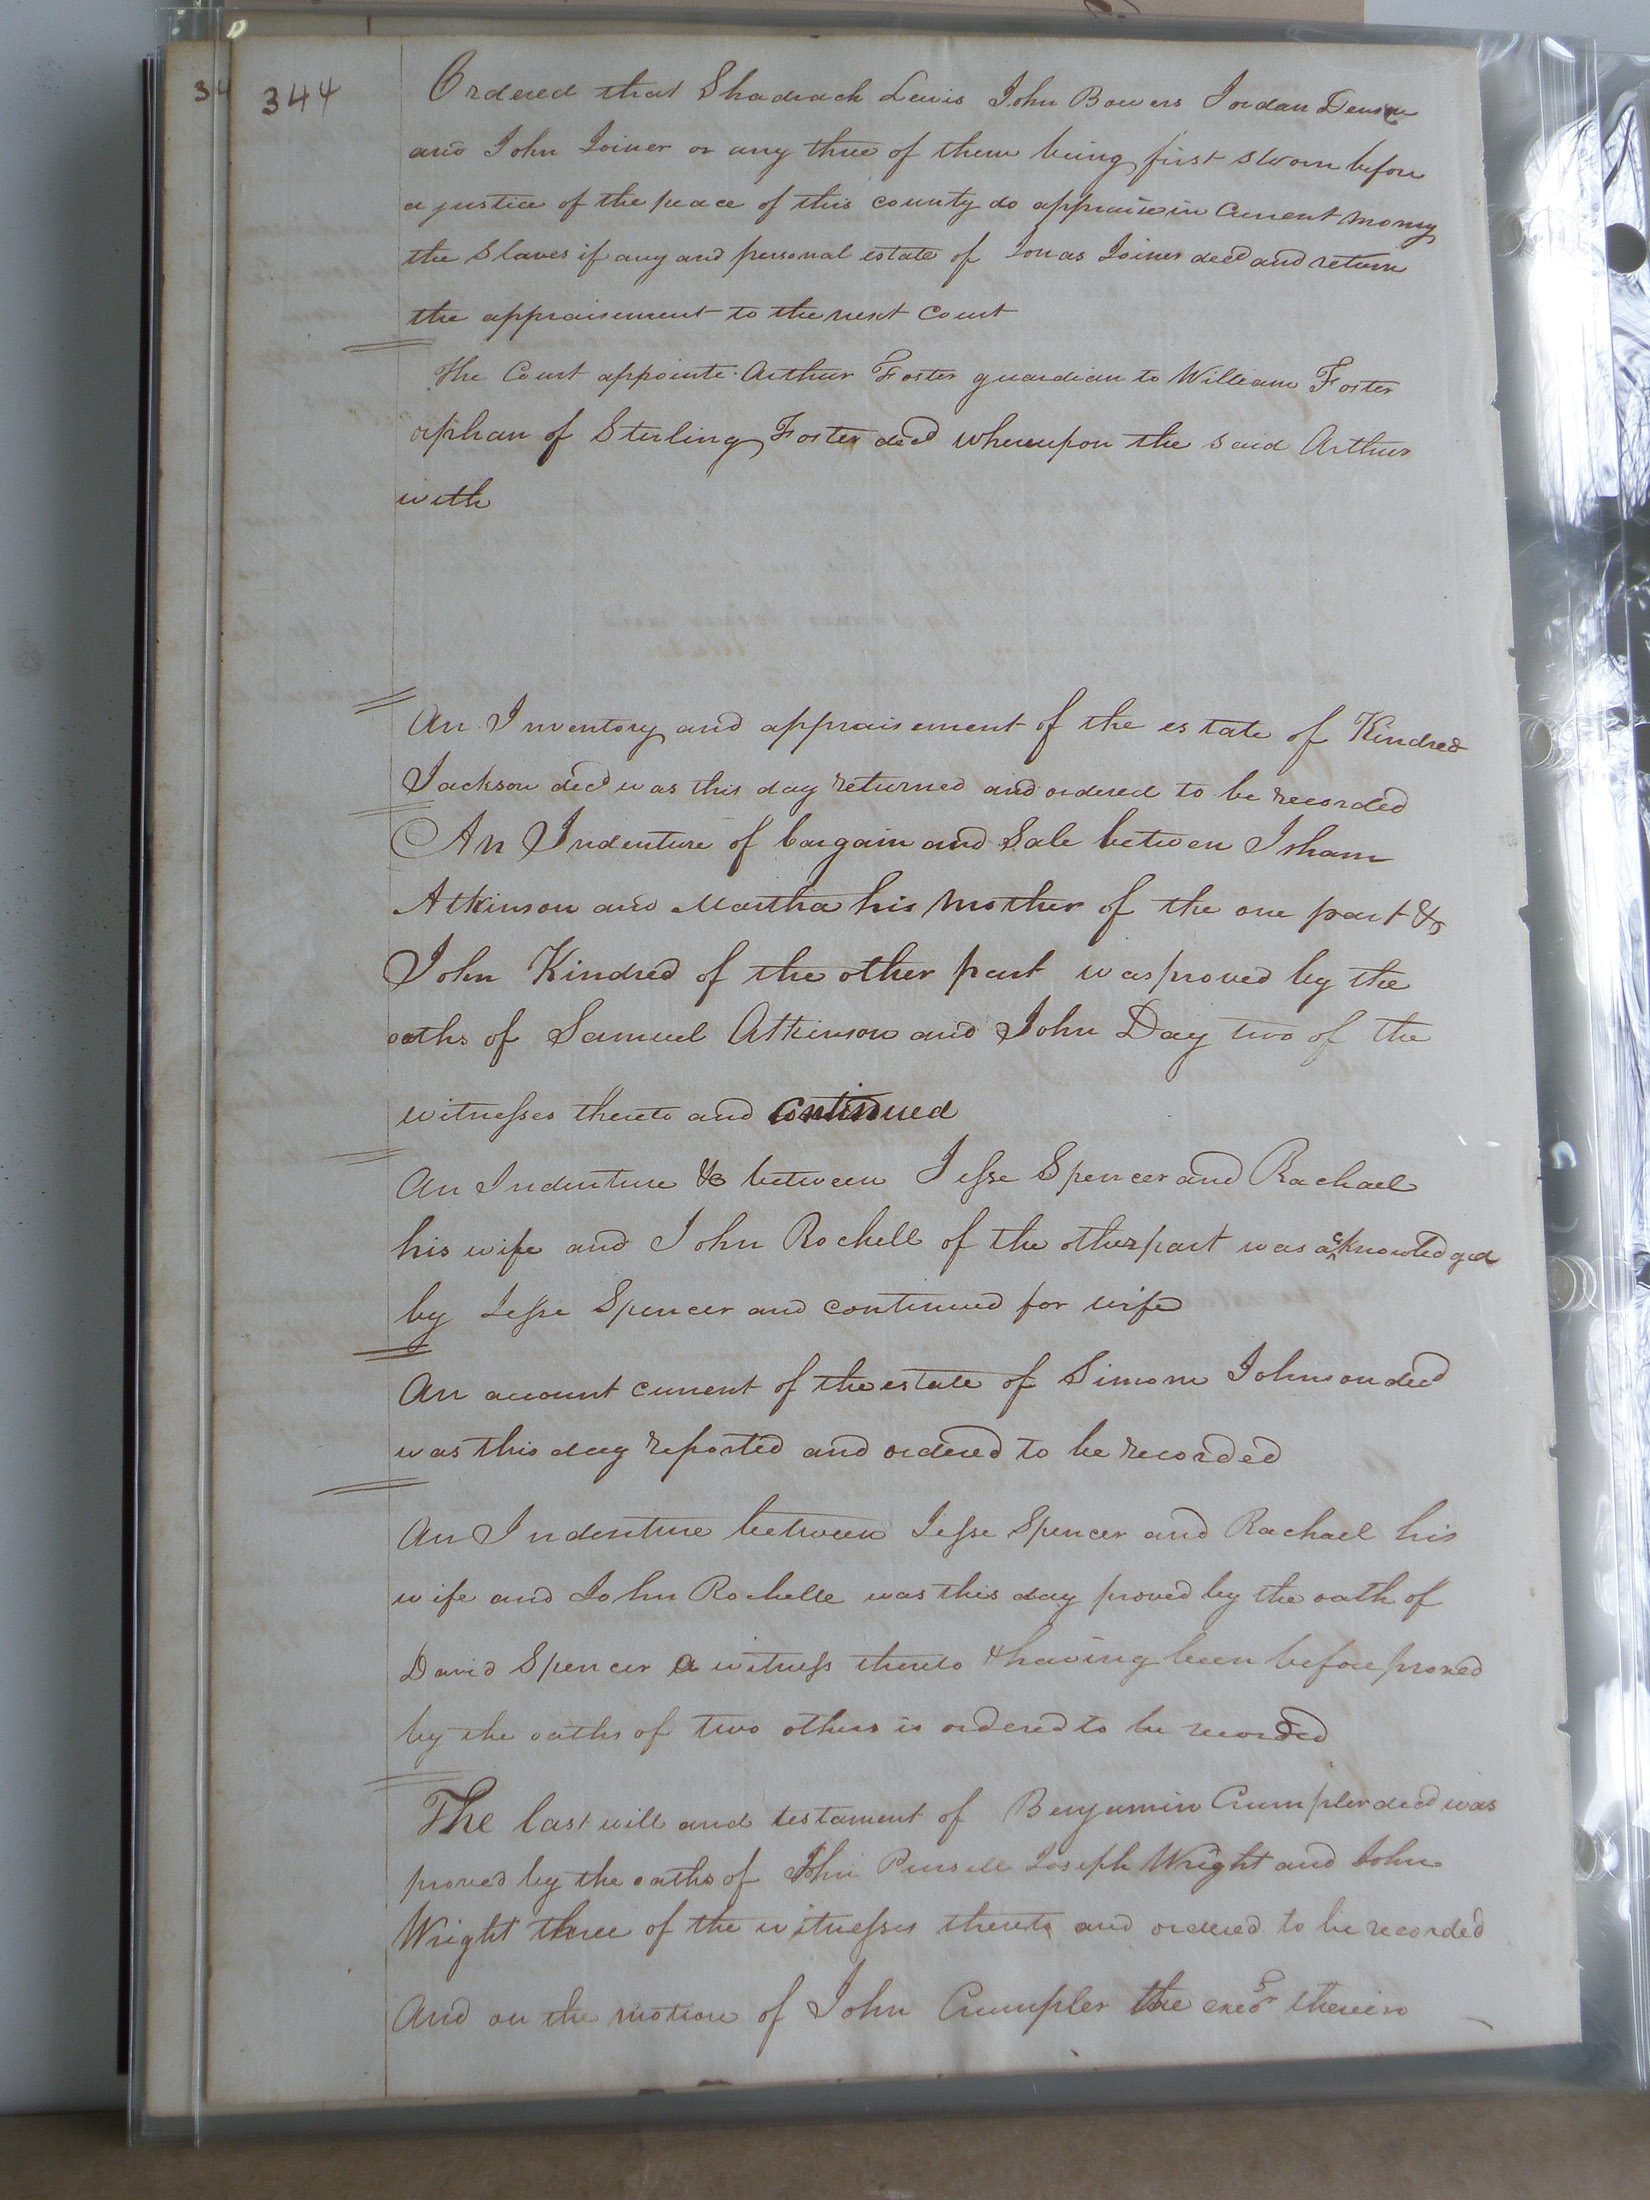 34
344
Ordered that Shadrach Lewis John Bowers Jordan Denson
and John Joiner or any three of them being first sworn before
a justice of the peace of this county do appraise in Current money
the Slaves if any and personal estate of Jonas Joiner decd and return
the appraisement to the next Court
The Court appoints Arthur Foster guardian to William Foster
orphan of Sterling Foster decd whereupon the said Arthur
with
An Inventory and appraisement of the estate of Kindred
Jackson decd was this day returned and ordered to be recorded
An Indenture of bargain and Sale between Isham
Atkinson and Martha his Mother of the one part &
John Kindred of the other part was proved by the
oaths of Samuel Atkinson and John Day two of the
witnesses thereto and continued
An Indenture &c between Jesse Spencer and Rachael
his wife and John Rochell of the other part was acknowledged
by Jesse Spencer and continued for wife
An account current of the estate of Simon Johnson decd
was this day reported and ordered to be recorded
An Indenture between Jesse Spencer and Rachael his
wife and John Rochelle was this day proved by the oath of
David Spencer a witness thereto & having been before proved
by the oaths of two others is ordered to be recorded
The last will and testament of Benjamin Crumpler decd was
proved by the oaths of John Pursell Joseph Wright and John
Wright three of the witnesses thereto and ordered to be recorded
And on the motion of John Crumpler the exeor therein